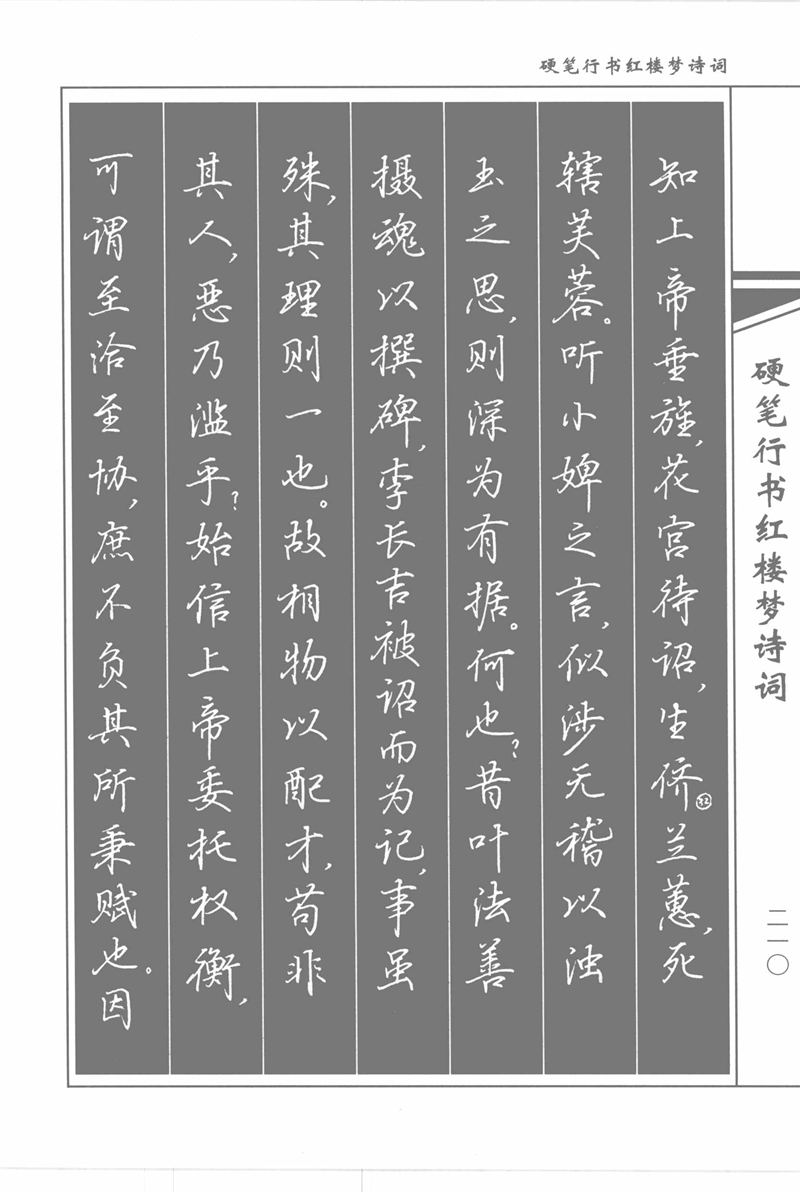 硬笔行书红楼梦诗词
知上帝垂旌，花宫待诏，生侪㉜兰蕙，死
辖芙蓉。听小婢之言，似涉无稽以浊
玉之思，则深为有据。何也？昔叶法善
摄魂以撰碑，李长吉被诏而为记，事虽
殊，其理则一也。故相物以配才，苟非
其人，恶乃滥乎？始信上帝委托权衡，
可谓至洽至协，庶不负其所秉赋也。因
硬笔行书红楼梦诗词
二一〇